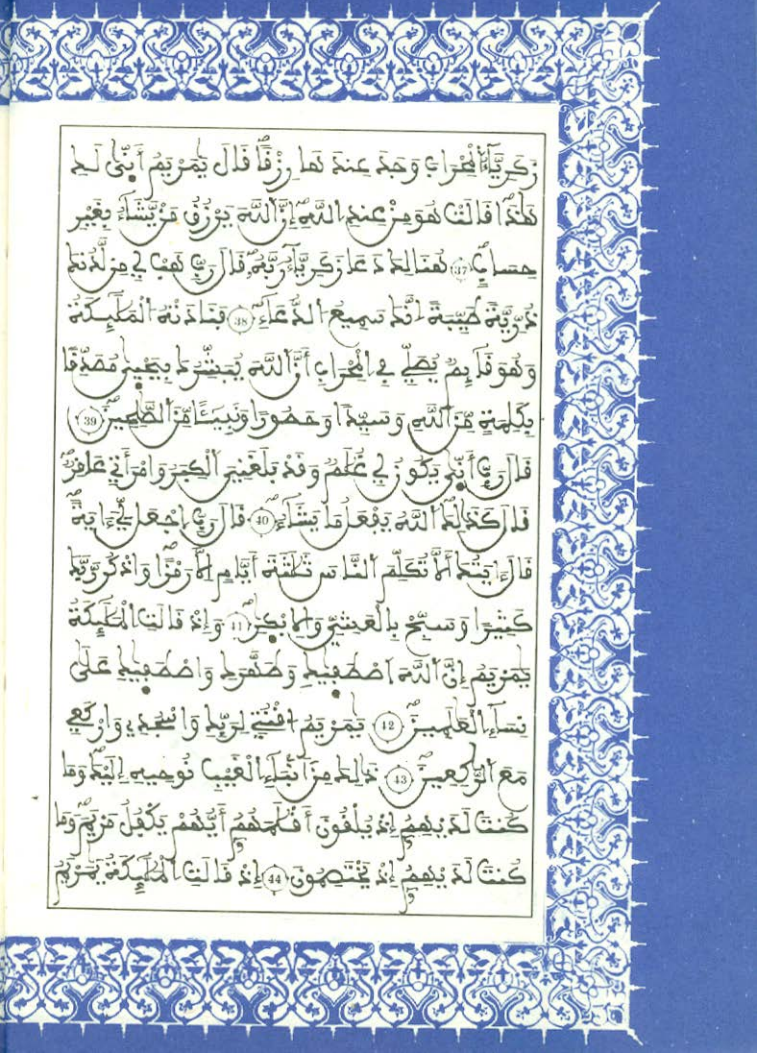 زَكَرِيَّآءُ اَلْمِحْرَابَ وَجَدَ عِندَهَا رِزْقاً قَالَ يَٰمَرْيَمُ أَنّ۪يٰ لَكِ
هَٰذَا قَالَتْ هُوَ مِنْ عِندِ اِللَّهِ إِنَّ اَللَّهَ يَرْزُقُ مَنْ يَّشَآءُ بِغَيْرِ
حِسَابٍ 37 هُنَالِكَ دَعَا زَكَرِيَّآءُ رَبَّهُۥ قَالَ رَبِّ هَبْ لِے مِن لَّدُنكَ
ذُرِّيَّةٗ طَيِّبَةً اِنَّكَ سَمِيعُ اُلدُّعَآءِ 38 فَنَادَتْهُ اُلْمَلَٰٓئِكَةُ
وَهُوَ قَآئِمٞ يُصَلِّے فِے اِلْمِحْرَابِ أَنَّ اَللَّهَ يُبَشِّرُكَ بِيَحْي۪يٰ مُصَدِّقاَۢ
بِكَلِمَةٖ مِّنَ اَللَّهِ وَسَيِّداٗ وَحَصُوراٗ وَنَبِيٓـٔاٗ مِّنَ اَلصَّٰلِحِينَ 39
قَالَ رَبِّ أَنّ۪يٰ يَكُونُ لِے غُلَٰمٞ وَقَدْ بَلَغَنِيَ اَلْكِبَرُ وَامْرَأَتِے عَاقِرٞ
قَالَ كَذَٰلِكَ اَللَّهُ يَفْعَلُ مَا يَشَآءُ 40 قَالَ رَبِّ اِجْعَل لِّيَ ءَايَةٗ
قَالَ ءَايَتُكَ أَلَّا تُكَلِّمَ اَلنَّاسَ ثَلَٰثَةَ أَيَّامٍ اِلَّا رَمْزاٗ وَاذْكُر رَّبَّكَ
كَثِيراٗ وَسَبِّحْ بِالْعَشِيِّ وَالِابْكٰ۪رِ 41 وَإِذْ قَالَتِ اِلْمَلَٰٓئِكَةُ
يَٰمَرْيَمُ إِنَّ اَللَّهَ اَصْطَف۪يٰكِ وَطَهَّرَكِ وَاصْطَف۪يٰكِ عَلَىٰ
نِسَآءِ اِلْعَٰلَمِينَ 42 يَٰمَرْيَمُ اُقْنُتِے لِرَبِّكِ وَاسْجُدِے وَارْكَعِے
مَعَ اَلرَّٰكِعِينَ 43 ذَٰلِكَ مِنَ اَنۢبَآءِ اِلْغَيْبِ نُوحِيهِ إِلَيْكَ وَمَا
كُنتَ لَدَيْهِمُۥٓ إِذْ يُلْقُونَ أَقْلَٰمَهُمُۥٓ أَيُّهُمْ يَكْفُلُ مَرْيَمَ وَمَا
كُنتَ لَدَيْهِمُۥٓ إِذْ يَخْتَصِمُونَ 44 إِذْ قَالَتِ اِلْمَلَٰٓئِكَةُ يَٰمَرْيَمُ